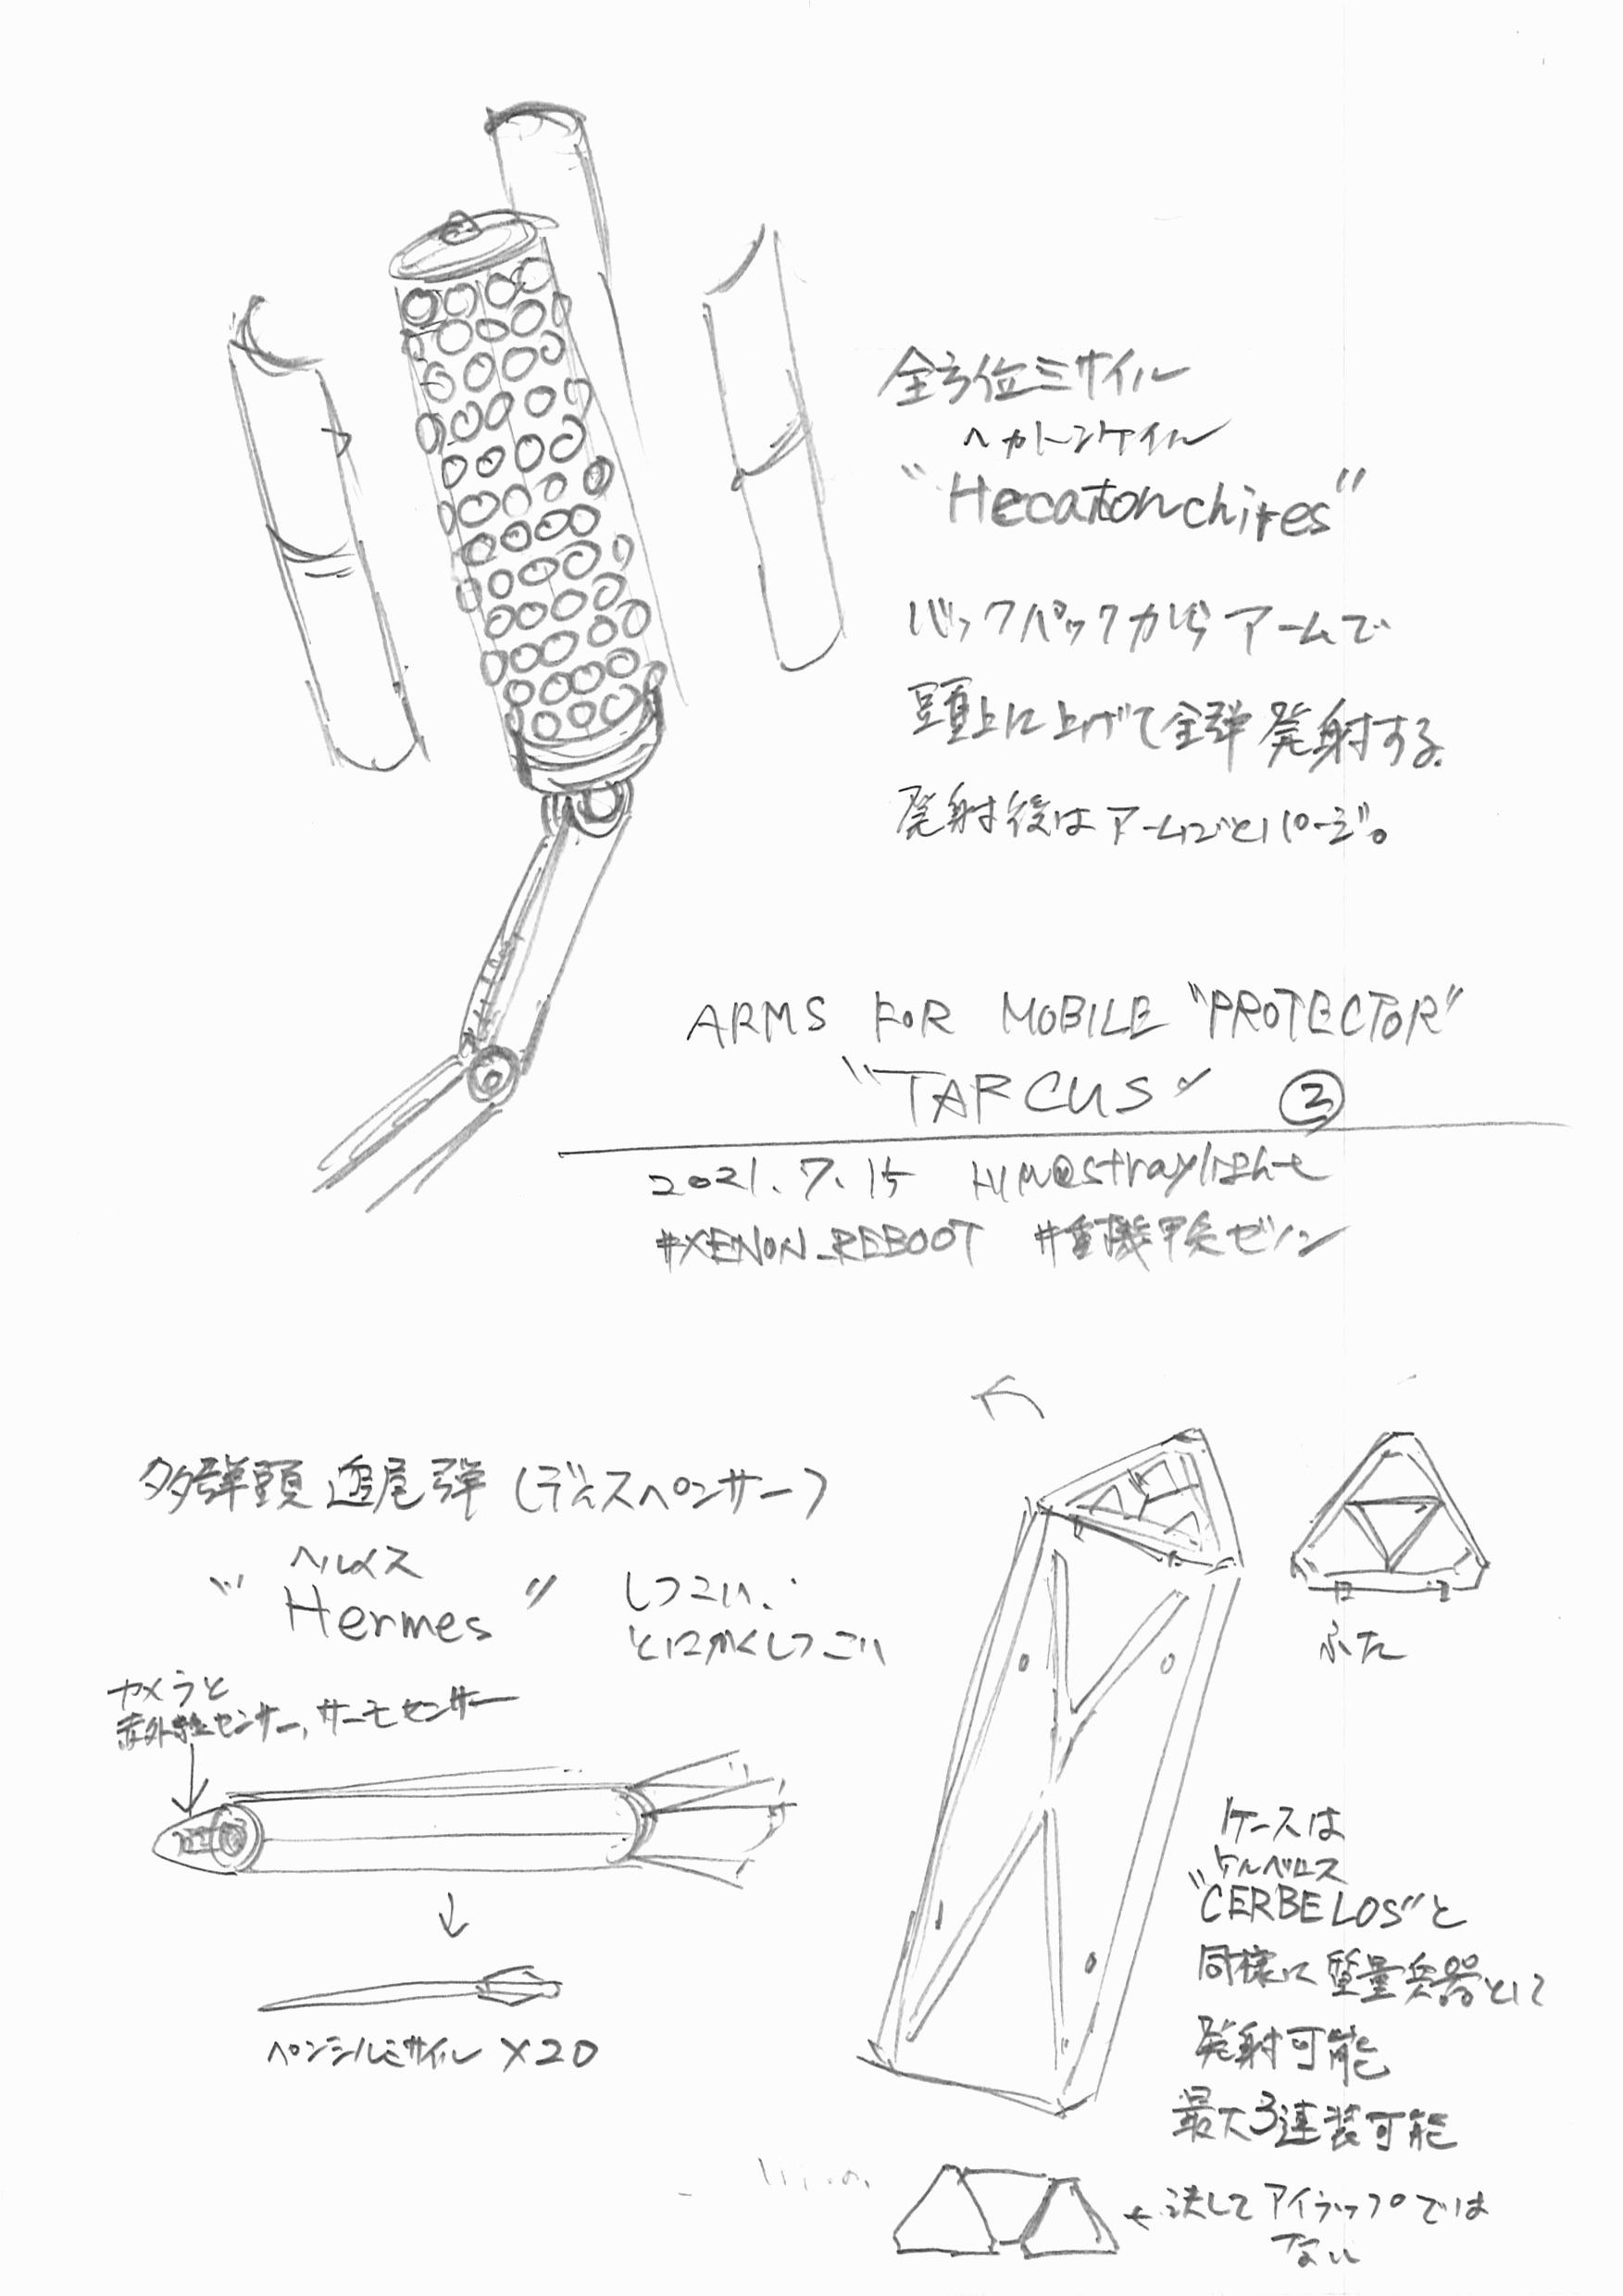 全方位ミサイル
ヘカトンケイル
"Hecatonchires"
バックパックからアームで
頭上に上げて全弾発射する.
発射後はアームごとパージ。
ARMS FOR MOBILE "PROTECTOR"
"TARCUS" ③
2021.7.15 @straylight
#XENON_REBOOT #重機甲兵ゼノン
多弾頭追尾弾(ディスペンサー)
ヘルメス
"Hermes"
しつこい.
とにかくしつこい
カメラと
赤外線センサー,サーモセンサー
ペンシルミサイル×20
ふた
ケースは
ケルベロス
"CERBELOS"と
同様に質量兵器として
発射可能
最大3連装可能
←決してアイラップでは
ない